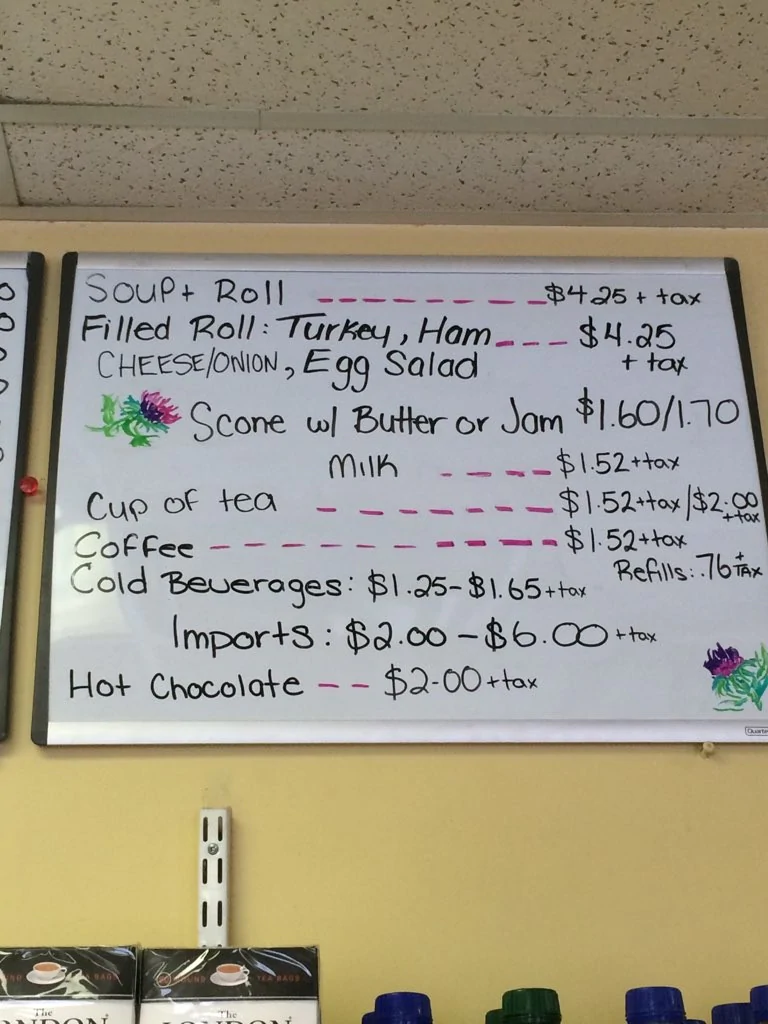 Soup + Roll $4.25 + tax
Filled Roll: Turkey, Ham $4.25
CHEESE/ONION, Egg Salad + tax
Scone w/ Butter or Jam $1.60/1.70
Milk $1.52+tax
Cup of tea $1.52+tax/$2.00
+tax
Coffee $1.52+tax
Refills: .76 + TAX
Cold Beverages: $1.25-$1.65+tax
Imports: $2.00-$6.00+tax
Hot Chocolate $2.00+tax
TEA BAGS
TEA BAGS
The
The
LONDON
LONDON